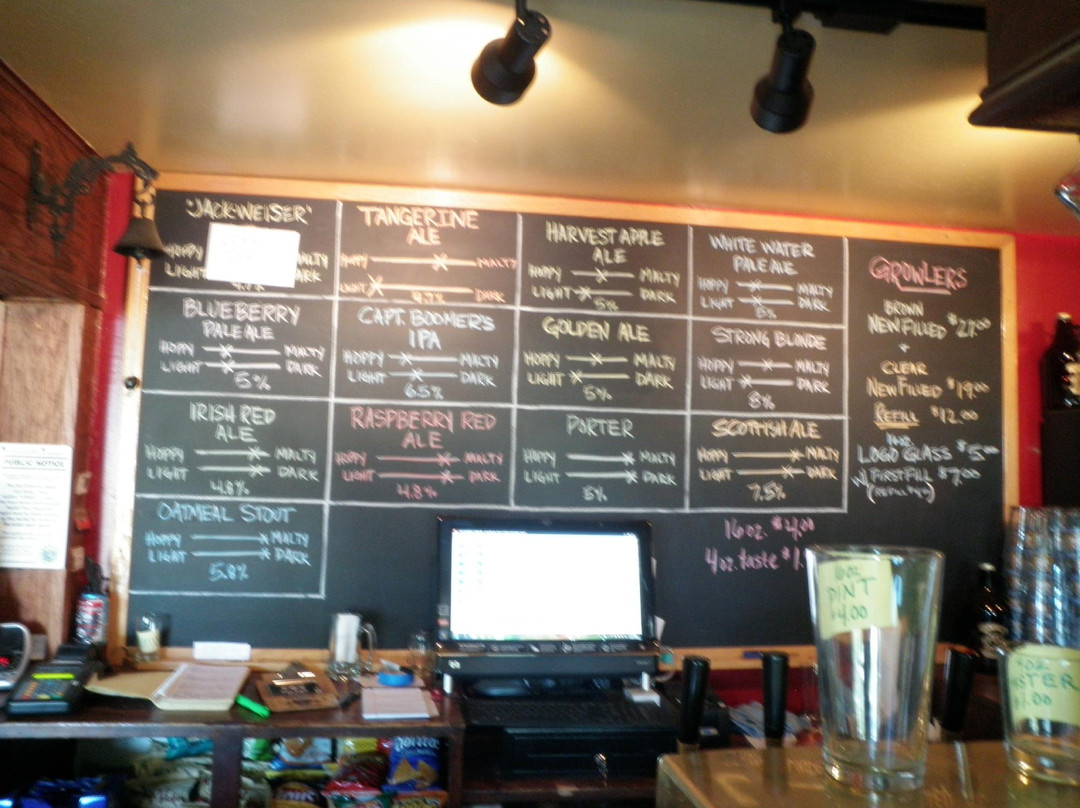 'JACK-WEISER'
HOPPY MALTY
LIGHT DARK
4.7%
TANGERINE
ALE
HOPPY MALTY
LIGHT DARK
4.7%
HARVEST APPLE
ALE
HOPPY MALTY
LIGHT DARK
5%
WHITE WATER
PALE ALE
HOPPY MALTY
LIGHT DARK
BLUEBERRY
PALE ALE
HOPPY MALTY
LIGHT DARK
5%
CAPT. BOOMER'S
IPA
HOPPY MALTY
LIGHT DARK
6.5%
GOLDEN ALE
HOPPY MALTY
LIGHT DARK
5%
STRONG BLONDE
HOPPY MALTY
LIGHT DARK
8%
IRISH RED
ALE
HOPPY MALTY
LIGHT DARK
4.8%
RASPBERRY RED
ALE
HOPPY MALTY
LIGHT DARK
4.8%
PORTER
HOPPY MALTY
LIGHT DARK
5%
SCOTTISH ALE
HOPPY MALTY
LIGHT DARK
7.5%
OATMEAL STOUT
HOPPY MALTY
LIGHT DARK
5.8%
GROWLERS
BROWN
NEW FILLED
+
CLEAR
NEW FILLED $19.00
REFILL $12.00
LOGO GLASS $5.00
W/ FIRST FILL $7.00
16 oz. $4.00
4 oz. taste $1.
PUBLIC NOTICE
16oz
PINT
$4.00
STER
$1.00
Doritos